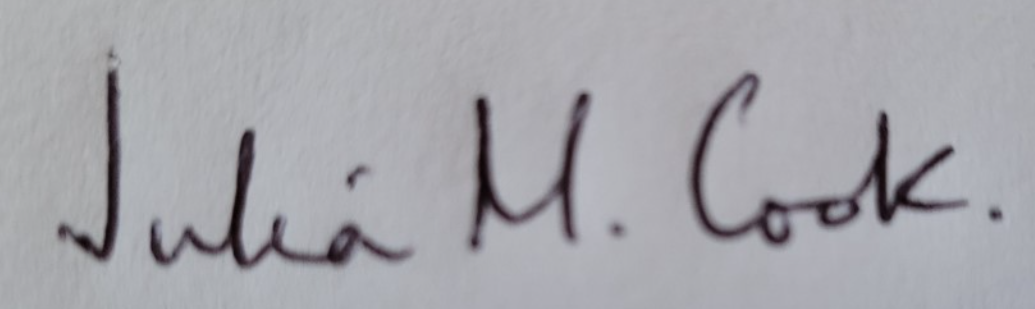 Julia M. Cook.